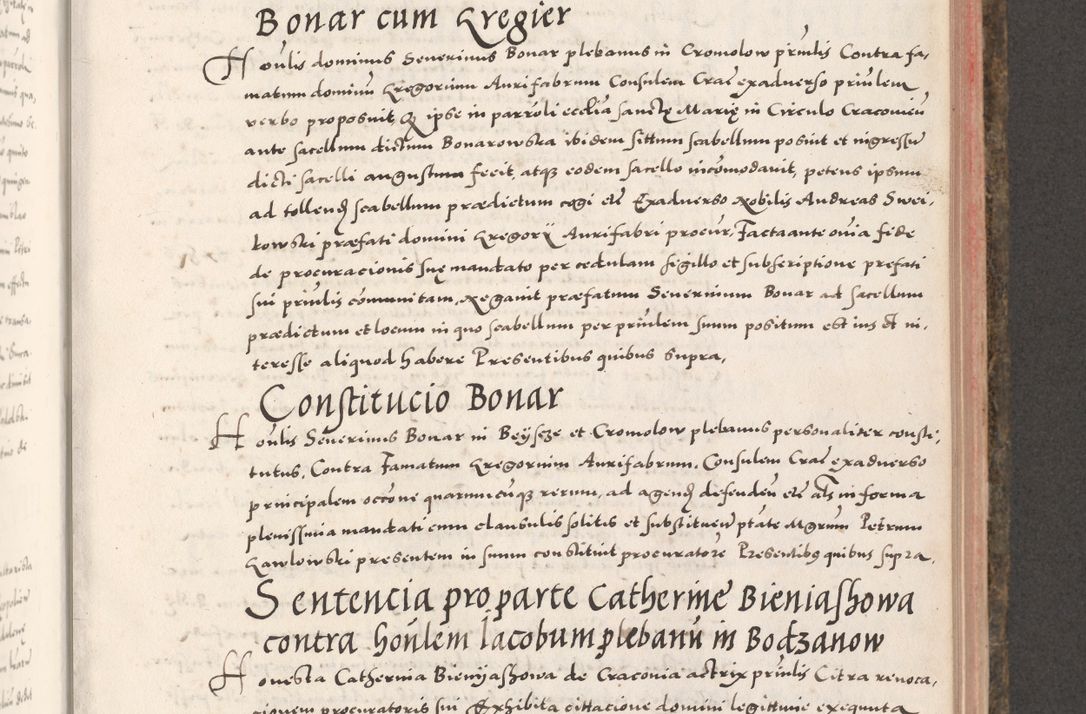 Bonar cum Gregier
Honĩlis dominus Severinus Bonar plebanus in Cromolow prĩnlis Contra fa-
matum dominũ Gregorium Aurifabrum Consulem Crac̃ ex adverso prĩnlem
verbo proposuit, Q̃ ipse in parroli ecclĩa sanctę Marię in Circulo Cracovieñ
ante sacellum dictum Bonarowska ibidem sittum scabellum posuit et ingressũ
dicti sacelli angustum fecit, atq̃ eodem sacello incõmodavit, petens ipsum
ad tollend̃ scabellum prædictum cogi etc̃ Ex adverso Nobilis Andreas Swei-
kowski præfati domini Gregorÿ Aurifabri procur̃, Facta ante oñia fide
de procuracionis suę mandato per cedulam sigillo et subscriptione prefati
sui prĩnlis cõmunitam, Negavit præfatum Severinum Bonar ad sacellum
prædictum et locum in quo scabellum per prĩnlem suum positum est ius et in-
teresse aliquod habere Presentibus quibus supra,
Constitucio Bonar
Honĩlis Severinus Bonar in Beysze et Cromolow plebanus personaliter consti-
tutus, Contra Famatum Gregorium Aurifabrum, Consulem Crac̃ ex adverso
principalem occõne quarumcũq̃ rerum, ad agend̃ defendeñ etc̃ als̃ in forma
plenissima mandati cum clausulis solitis et substituen̄ ptãte Mgrum̃ Petrum
Gawlowski presentem in suum constituit procuratore Presentibq̃ quibus supra.
Sentencia pro parte Catherine Bieniashowa
contra hoñlem Iacobum plebanũ in Bodzanow
Honesta Catherina Bieniashowa de Cracovia actrix prĩnlis Citra revoca-
cionem procuratoris sui Exhibita cittacione domini legittime exequuta